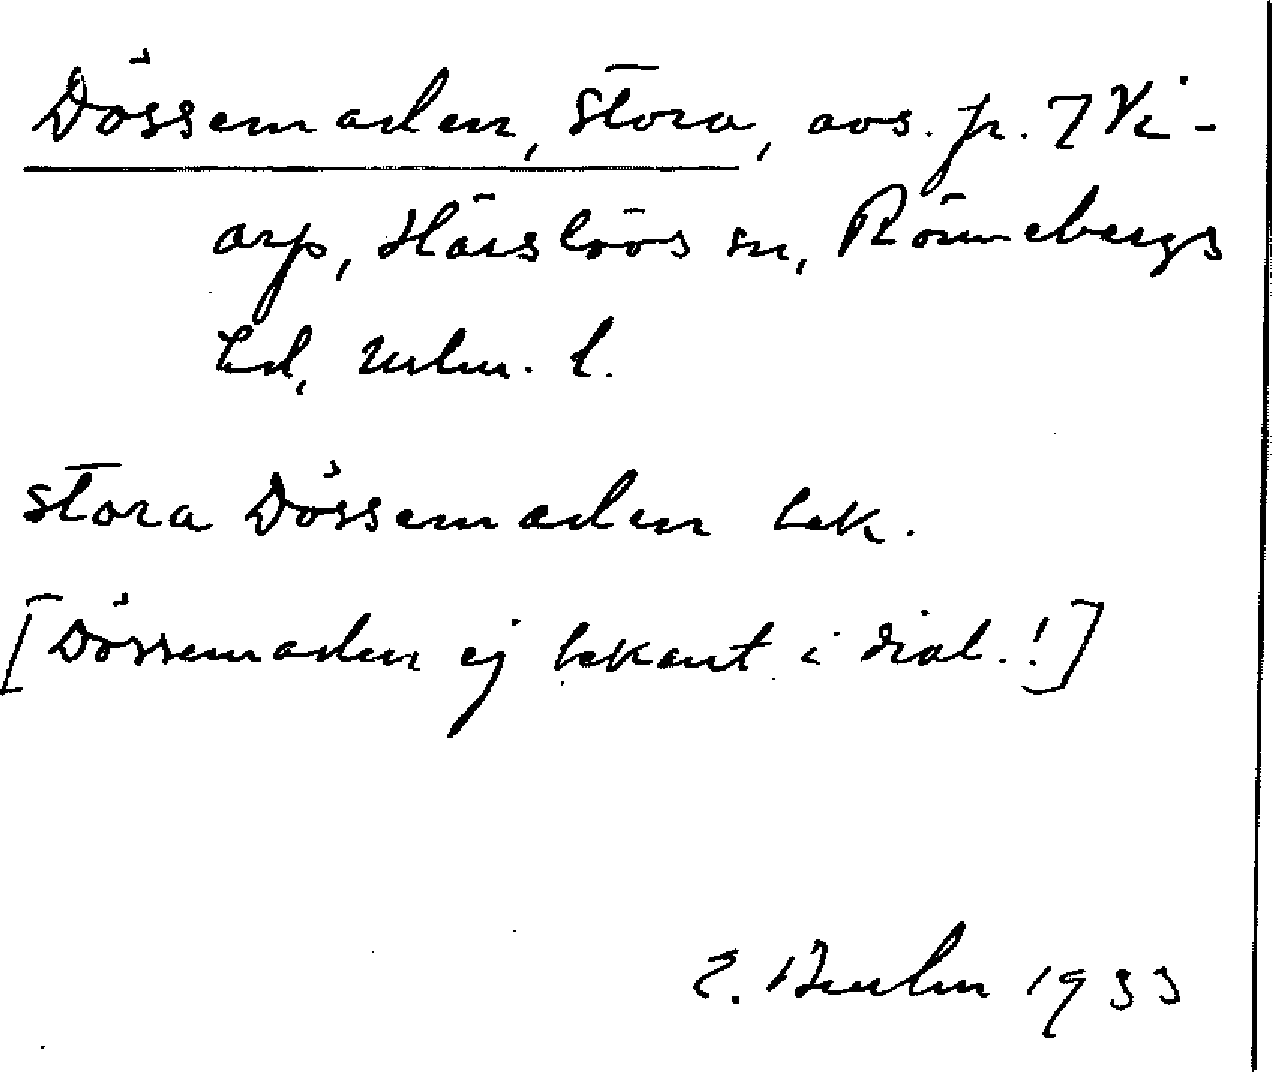 Dössemaden, stora, avs. fr. 7 Vi-
arp, Härslövs sn, Rönnebergs
hd, Mlm. l.
stora Dössemaden bek.
[Dössemaden ej bekant i dial.!]
1933